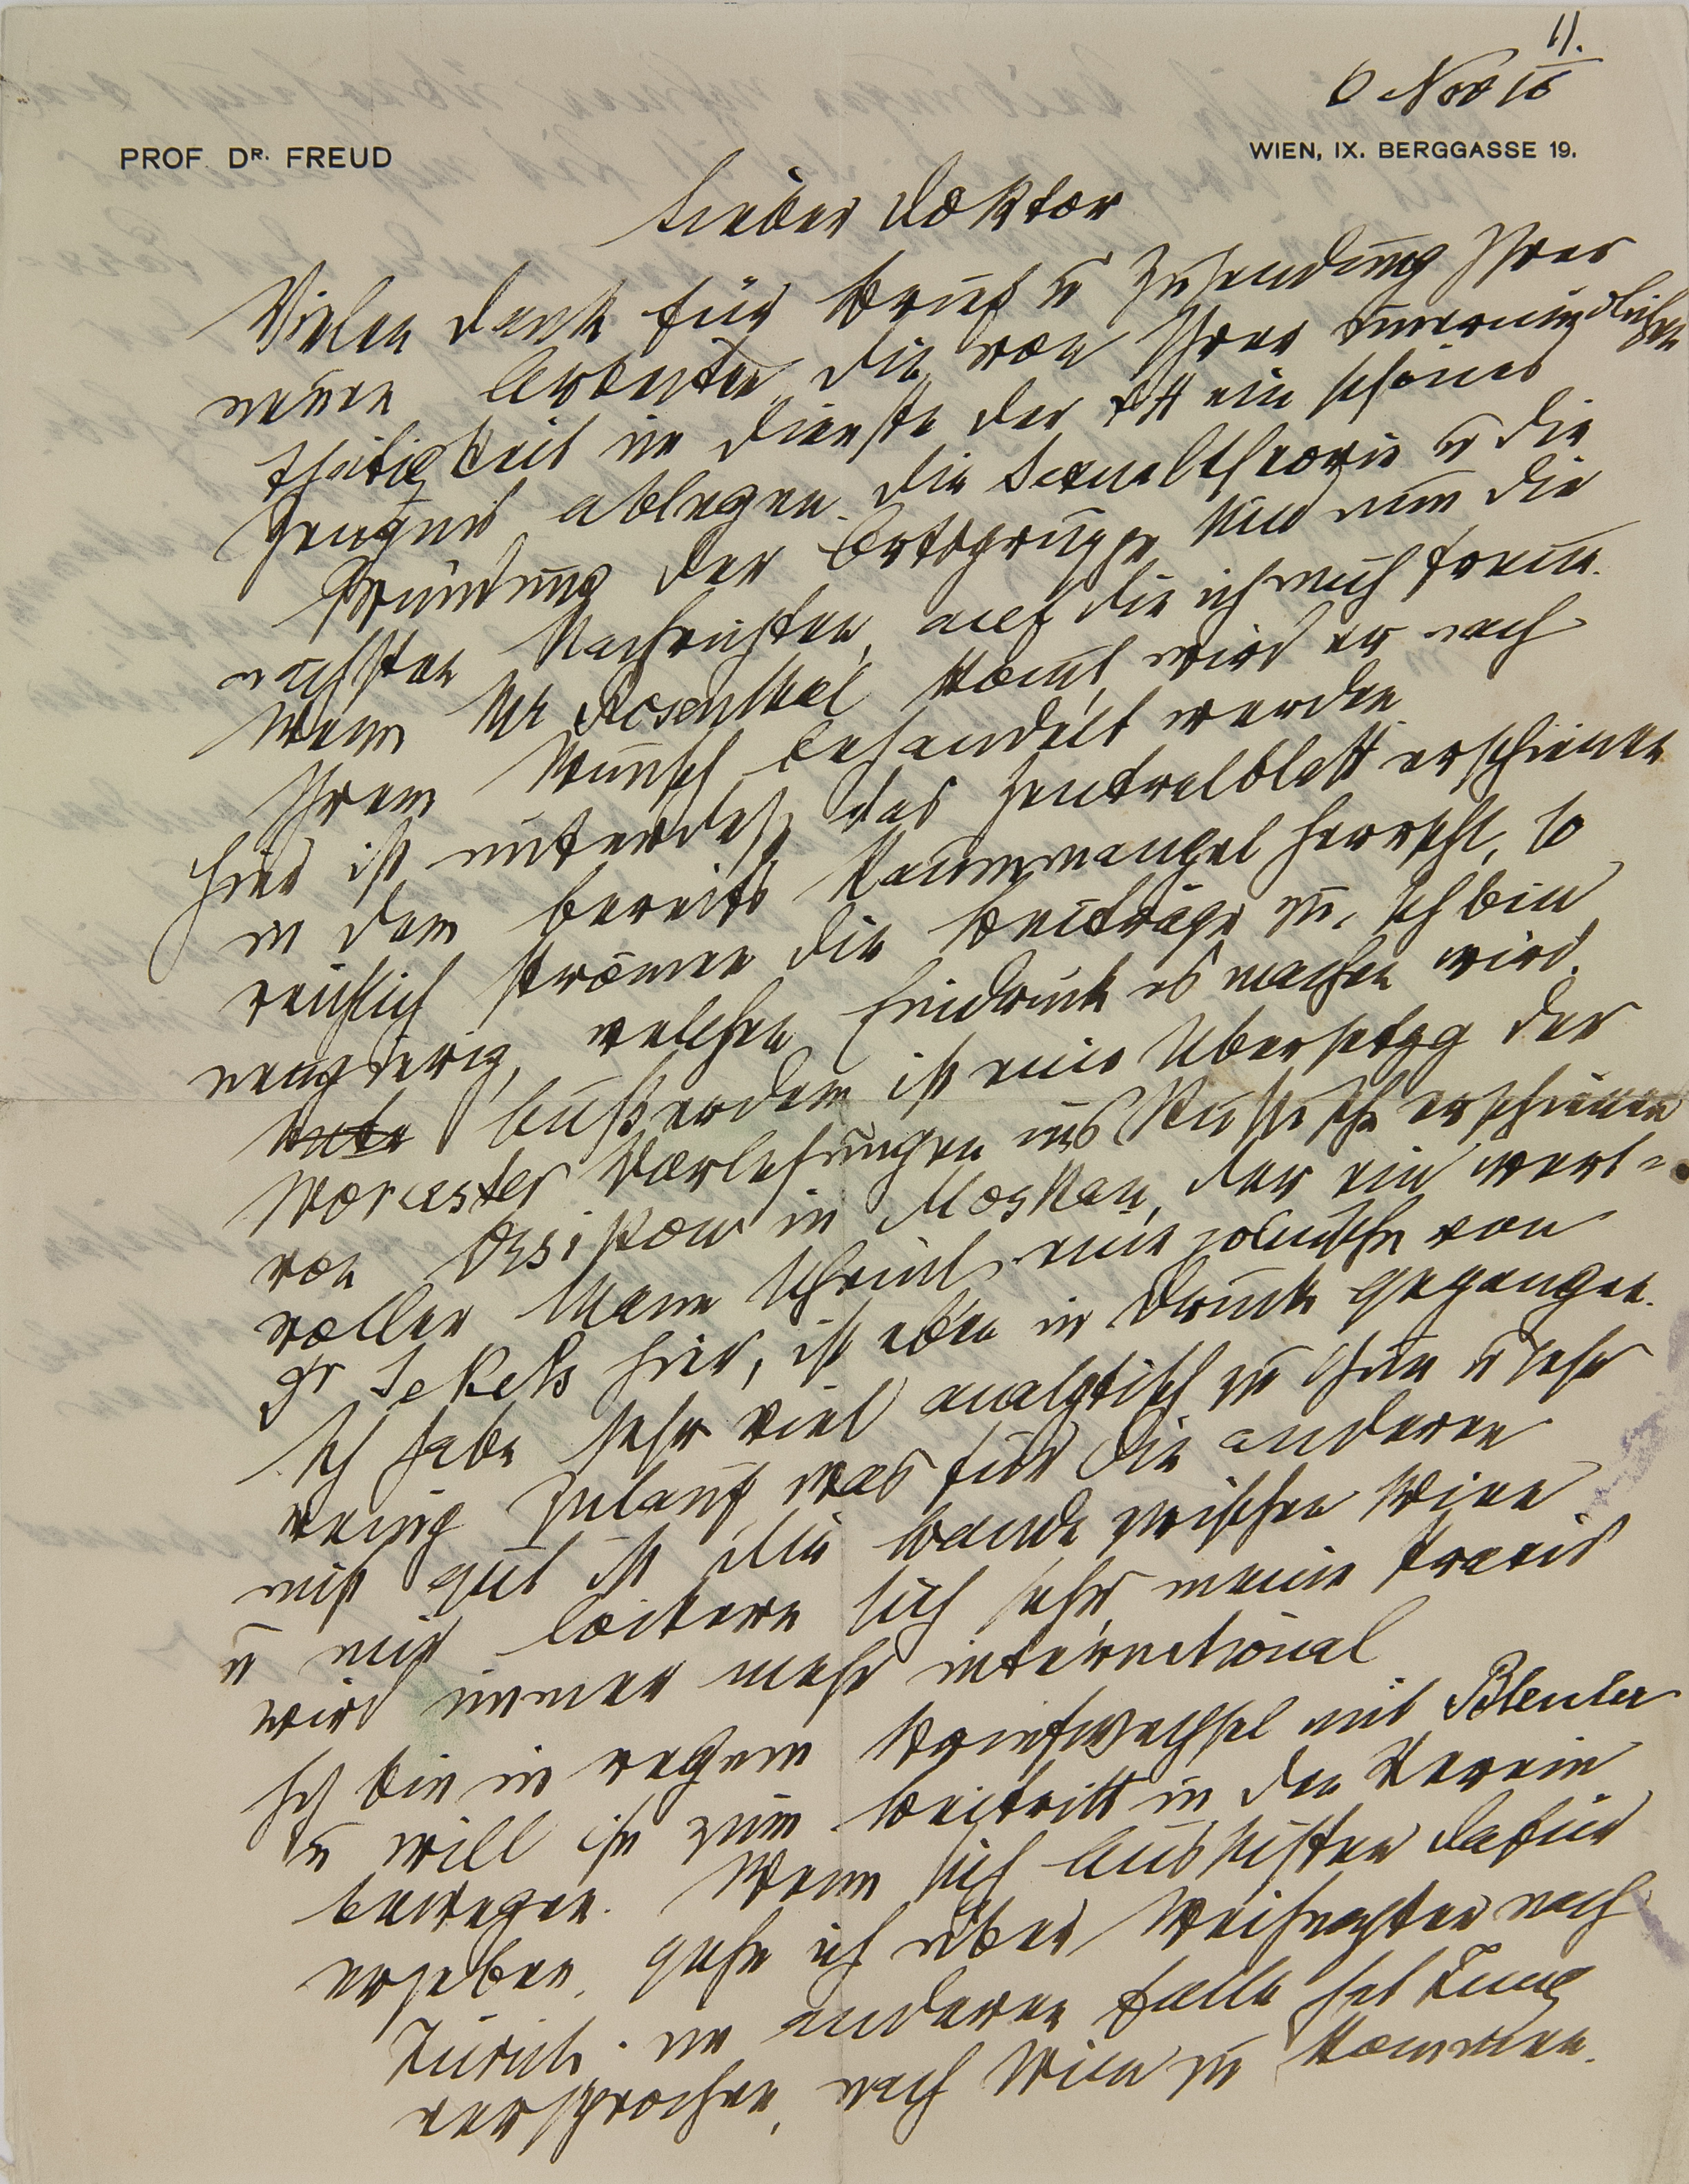 11.
6 Nov 10
PROF. DR. FREUD
WIEN, IX. BERGGASSE 19.
Lieber Doktor
Vielen Dank für Brief u Zusendung Ihrer
neuen Arbeiten, die von Ihrer unermüdlichen
Thätigkeit im Dienste der ein schönes
Zeugnis ablegen. Die Sexualtheorie u die
Gründung der Ortsgruppe sind nun die
nächsten Nachrichten, auf die ich mich freue.
Wenn Mr Rosenthal kommt, wird er nach
Ihrem Wunsch behandelt werden
Hier ist unterdeß das Zentralblatt erschienen
in dem bereits Raummangel herrscht, so
reichlich strömen die Beiträge zu. Ich bin
neugierig, welchen Eindruck es machen wird.
Außerdem ist eine Übersetzg der
Worcester Vorlesungen ins Russische erschienen
von Ossipow in Moskau, der ein wert-
voller Mann scheint, eine polnische von
Dr Jekels hier, ist eben in Druck gegangen.
Ich habe sehr viel analytisch zu thun u sehr
wenig Zulauf was für die anderen
nicht gut ist. Die Bande zwischen Wien
u mir lockern sich sehr, meine Praxis
wird immer mehr international
Ich bin in regem Briefwechsel mit Bleuler
u will ihn zum Beitritt in den Verein
bewegen. Wenn sich Aussichten dafür
ergeben, gehe ich über Weihnachten nach
Zürich. im anderen Falle hat Jung
versprochen, nach Wien zu kommen.